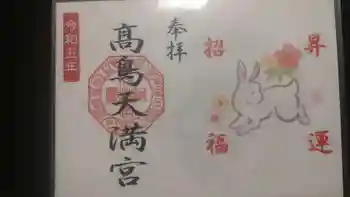 昇運
招福
奉拝
髙鳥天満宮
令和五年